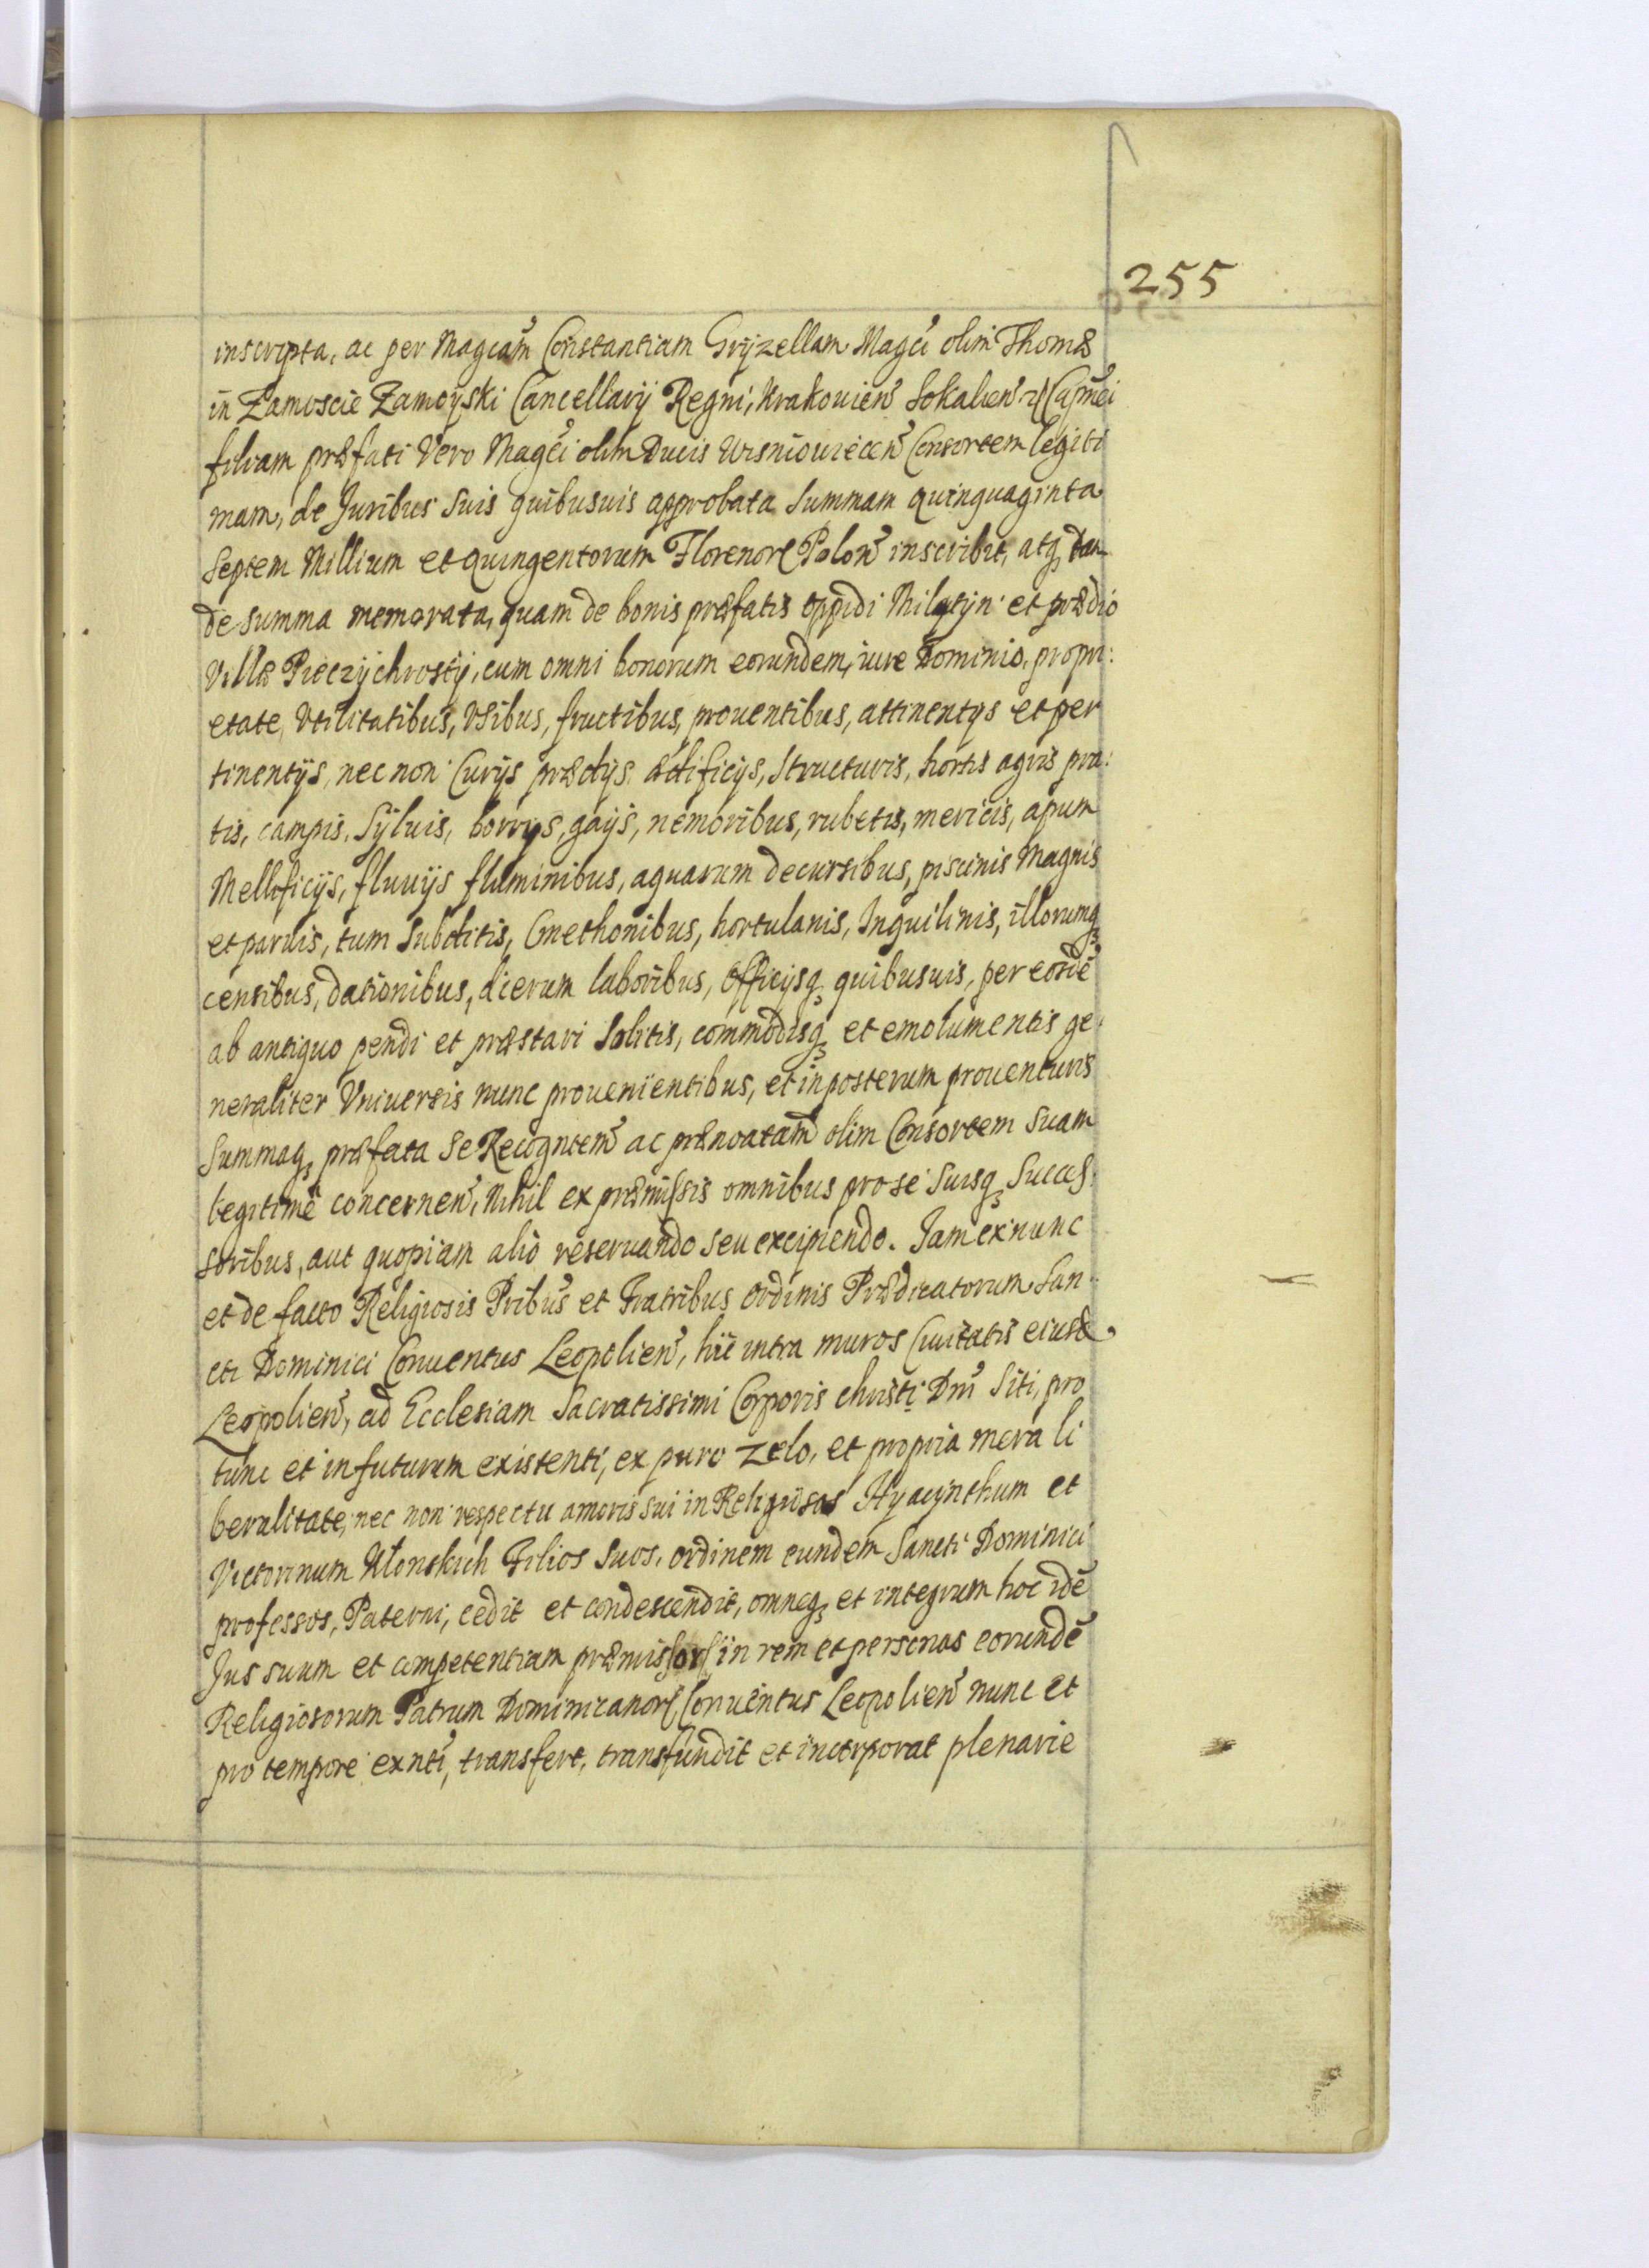 255
inscripta, ac per Magcam̃ Constantiam Gryzellam Magci olim Thomæ
in Zamoscie Zamoÿski Cancellarij Regni, Krakouien̄ Sokalien̄ Capnei
filiam præfati Vero Magci olim Ducis Wisniouiecen̄ Consortem legiti
mam, de Juribus suis quibusuis approbata summam quinquaginta
septem Millium et quingentorum Florenor Polon̄ inscribit, atq
de summa memorata, quam de bonis præfatis oppidi Milatÿn et prædio
Villæ Pieczÿchrostÿ, cum omni bonorum eorundem, iure Dominio, propri:
etate, Vtilitatibus, Vsibus, fructibus, prouentibus, attinentijs et per
tinentijs, nec non Curijs prædijs ædificijs, structuris, hortis agris pra:
tis, campis, Sÿluis, borrijs, gaijs, nemoribus, rubetis, mericis, apum
Mellificijs, fluuijs fluminibus, aquarum decursibus, piscinis Magnis
et paruis, tum subditis, Cmethonibus, hortulanis, Inquilinis, illorumq
censibus, dationibus, dierum laboribus, officijsq quibusuis, per eosdē
ab antiquo pendi et præstari solitis, commodisq et emolumentis ge:
neraliter Vniuersis nunc prouenientibus, et in posterum prouenturis
summaq præfata se Recogntem̄ ac prænoatam̄ olim Consortem suam
legitimē concernen̄, Nihil ex præmissis omnibus pro se suisq succes:
soribus, aut quopiam alio reseruando seu excipiendo. Jam ex nunc
et de facto Religiosis Pribus et Fratribus ordinis Prædicatorum San
cti Dominici Conuentus Leopolien̄, hic intra muros Ciuitatis eiusd
Leopolien̄, ad Ecclesiam Sacratissimi Corporis christi Dni siti, pro
tunc et in futurum existenti, ex puro zelo, et propria mera li
beralitate, nec non respectu amoris sui in Religiosos Hyacynthum et
Victorinum Ulonskich Filios suos, ordinem eundem Sancti Dominici
professos, Paterni, cedit et condescendit, omneq et integrum hoc idē
Jus suum et competentiam præmissor in rem et personas eorundē
Religiosorum Patrum Dominicanor Conuentus Leopolien̄ nunc et
pro tempore exnti, transfert, transfundit et incorporat plenarie